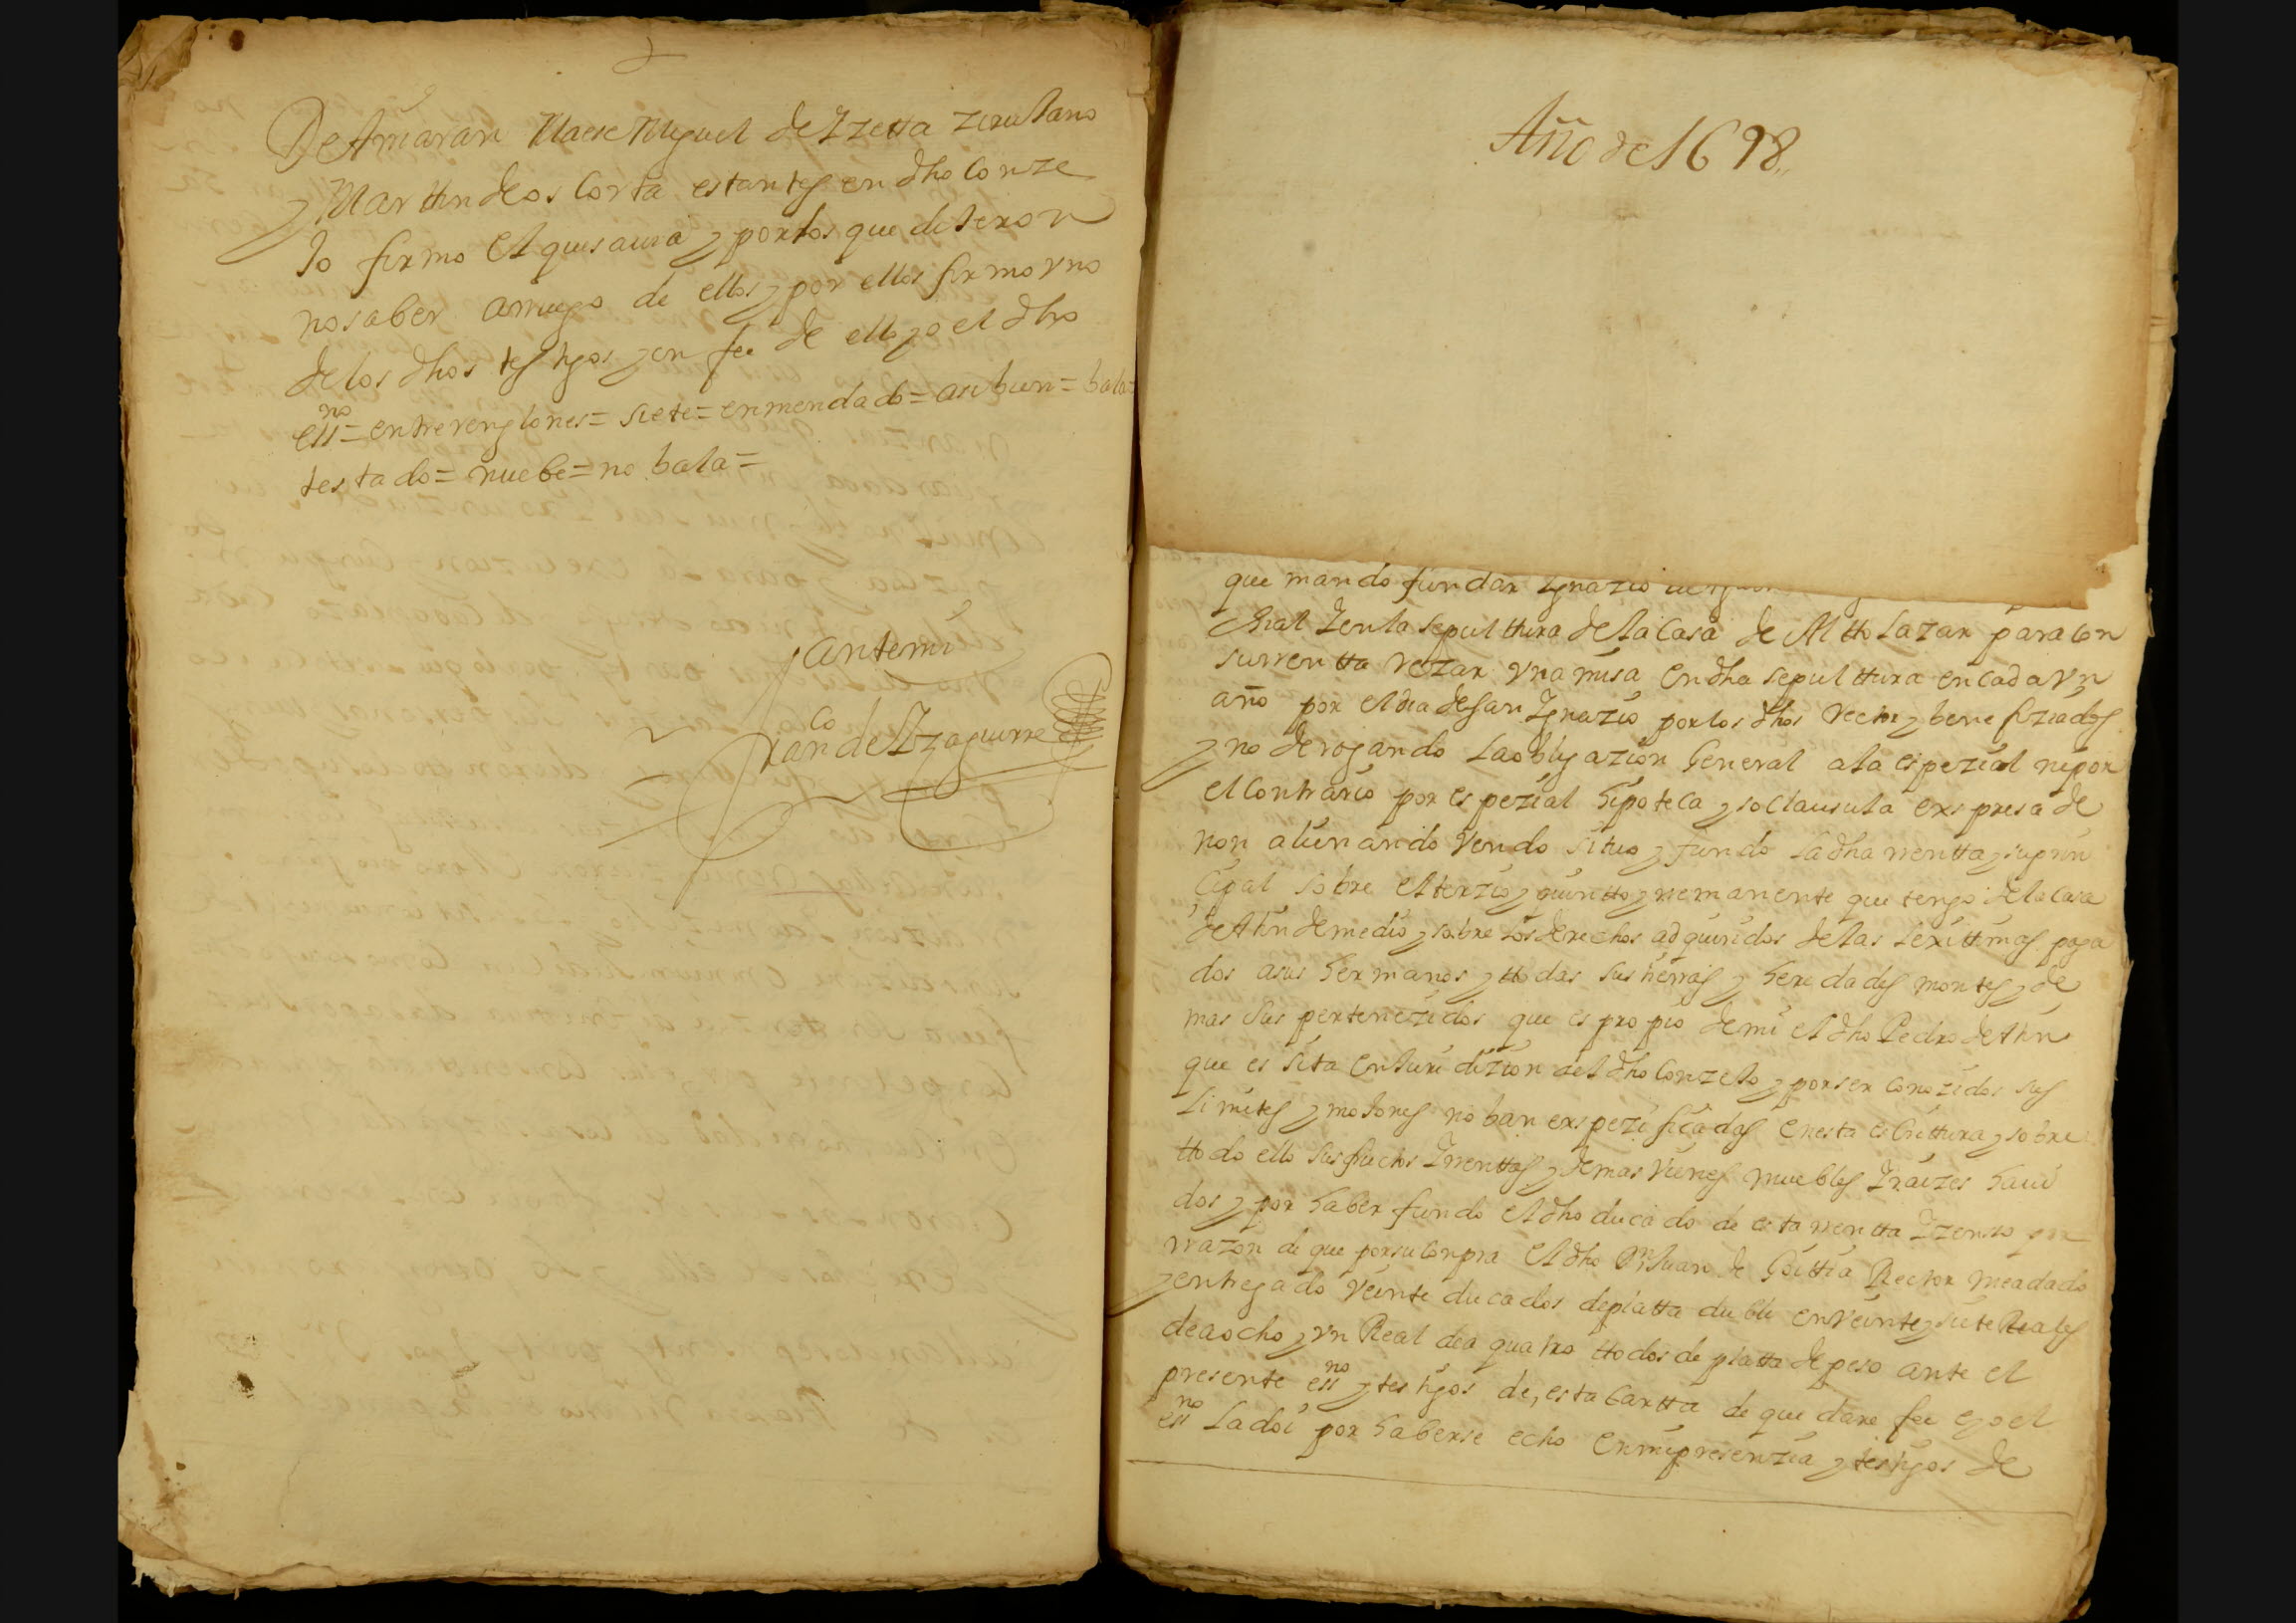 De Amaran Maese Miguel de Yzetta zirujano
y Marttin de os Corta estantes en dho Conze
Jo firmo el que savia y por los que dijeron
no saber arruego de ellos y por ellos firmo vno
de los dhos testigos y en fee de ello yo el dho
essno = entrerenglones = siete = enmendado = asi bien = bala =
testado = nuebe = no bala =
antemi
Franco de Yzaguirre
Año de 1698
que mando fundar Ygnazio
chial Y en la sepulttura de la Casa de Altto Lazar para con
su rrentta rezar vna misa en dha sepulttura en cada vn
año por el dia de san Ygnazio por los dhos Rector y benefiziados
y no derogando la obligazion general a la espezial ni por
el contrario por espezial hipoteca y so clausula exspresa de
non alienando vendo situo y fundo la dha rrentta y suprin
cipal sobre el terzio y quintto y rremanente que tengo de la Casa
de Atin de medio y sobre los derechos adquiridos de las lexittimas paga
dos a sus hermanos y ttodas sus tierras y heredades montes y de
mas sus pertenezidos que es propio de mi el dho Pedro de Atin
que es sita en Juridizion del dho Conzejo y por ser conozidos sus
limites y mojones no ban exspezificadas en esta escrittura y sobre
ttodo ello sus fructos Y rrenttas y demas vienes muebles Y raizes haui
dos y por haber fundo el dho ducado de esta rrentta Y zenso por
rrazon de que por su conpra el dho Dn Juan de Goittia Rector me a dado
y entregado veinte ducados de platta duble en veinte y siete Reales
de a ocho y vn Real de a quatro ttodos de platta de peso ante el
presente essno y testigos de esta Cartta de que dara fee e yo el
essno la doi por haberse echo en mi presenzia y testigos de